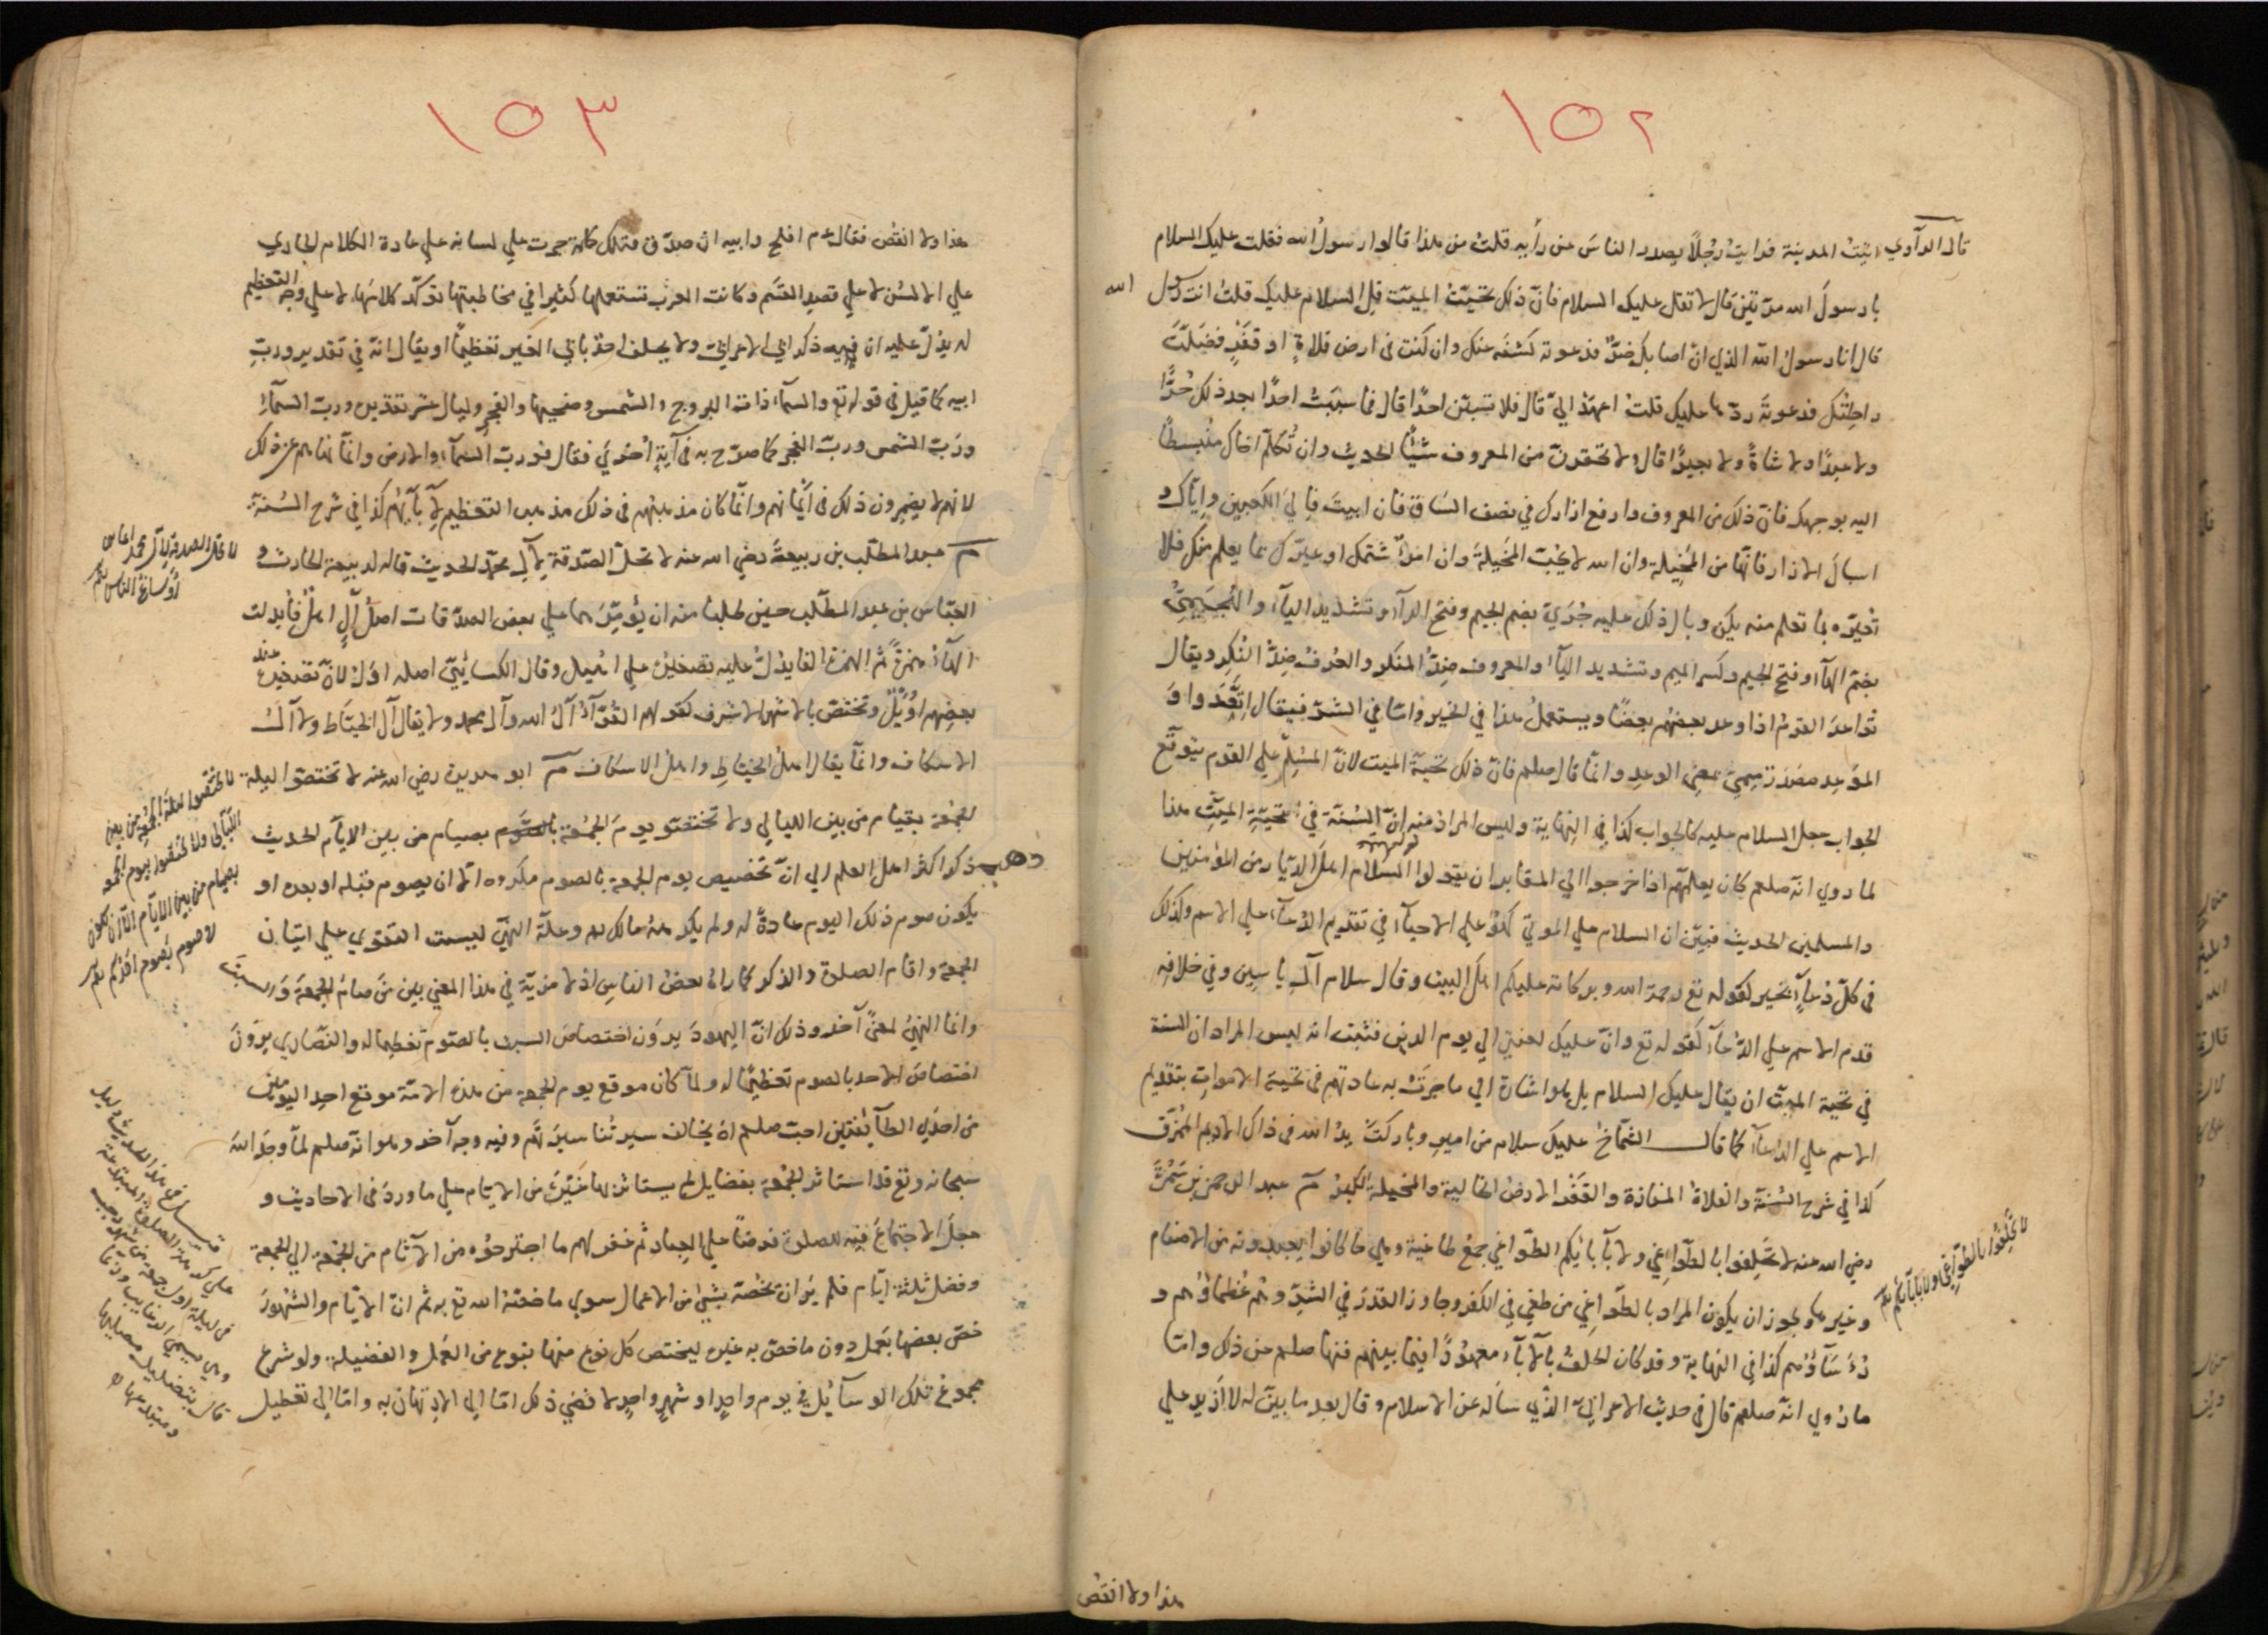 ١٥٢
قال الراوي اتيتُ المدينة فرايتُ رجُلاً يصدر الناسَ عن رأيه قلتُ من هذا قالوا رسولُ الله فقلت عليك السلام
يا رسولَ الله مرّتين قال لا تقل عليك السلام فانّ ذلك تحيّتُ الميّت قل السلام عليك قلتُ انت رسول الله
قال انا رسولُ الله الذي ان اصابك ضرٌّ فدعوته كشفه عنك وان كنت في ارض فلاةٍ او قفرٍ فضلّت
راحلتك فدعوتَه ردّها عليك قلتُ اعهد اليّ قال فلا تسبّن احدًا قال فما سببتُ احدًا بعد ذلك حُرًّا
ولا عبدًا ولا شاةً ولا بعيرًا قال ولا تحقرنّ من المعروف شيئًا الحديث وان تُكلّم اخاك منبسطًا
اليه بوجهك فانّ ذلك من المعروف وارفع ازارك في نصف السّاق فان ابيتَ فالى الكعبين وايّاك و
اسبالَ الازار فانّها من المَخيلة وان الله لا يحبّ المَخيلةَ وان امرؤٌ شتمك او عيّرك بما يعلم منك فلا
تُعيّره بما تعلم منه يكن وبال ذلك عليه جُرَيّ بضم الجيم وفتح الرآء وتشديد اليآء والهُجَيميّ
بضمّ الهآء وفتح الجيم وكسر الميم وتشديد اليآء والمعروف ضدُّ المنكر والعُرفُ ضدُّ النُكر ويقال
تواعدَ القومُ اذا وعد بعضهُم بعضًا ويستعملُ هذا في الخير وامّا في الشرّ فيقال اتّعَدوا وَ
الموَعِد مصدَر ميميّ بمعنى الوعد وانّما قال صلعم فانّ ذلك تحيّةُ الميت لانّ المُسَلِّم على القوم يتوقّع
الجواب بعلى السلام عليه كالجواب كذا في النهاية وليس المرادُ منه انّ السُنّة في تحيّةِ الميّتِ هذا
لما روي انّه صلعم كان يعلّمهم اذا خرجوا الى المقابر ان يقولوا السلام اهلَ الديّار من المؤمنين
والمسلمين الحديث فبيّن ان السلام على الموتى كهُوَ على الاحيآء في تقديم الدُعآء على الاسم وكذلك
في كلّ دُعآءٍ بخير لقوله تع رحمة الله وبركاته عليكم اهلَ البيت وقال سلام آل ياسين وفي خلافه
قدم الاسم على الدُعآء كقوله تع وانّ عليك لعنتي الى يوم الدين فثبت انه ليس المراد ان السنة
في تحية الميّت ان يقال عليك السلام بل هو اشارة الى ما جرَتْ به عادتهم في تحية الاموات بتقديم
الاسم على الدُعآء كما قال الشّمّاخُ عليك سلام من امير وباركت يدُ الله في ذاك الاديم الممزّق
كذا في شرح السُنّة والفلاةُ المفازة والقَفَر الارضُ الخالية والمخيلةُ الكبرُ م عبد الرحمن بن سَمُرة
رضي الله عنه لا تحلفوا بالطّواغي ولا بآبائكم الطّواغي جمعُ طاغية وهي ما كانوا يعبدونه من الاصنام
وغيرها ويجوز ان يكون المراد بالطّواغي من طغى في الكفر وجاوز القدَرَ في الشرّ وهُم عُظماؤهم و
رُءُسَآؤُهم كذا في النهاية وقد كان الحلفُ بالآبآء معهودًا فيما بينهم فنهاهم صلعم عن ذلك وامّا
ما رُوي انّه صلعم قال في حديث الاعرابيّ الذي ساَله عن الاسلام وقال بعد ما بيّن له لا اَزيد على
لا تحلِفُوا بالطّواغي ولا بآبآئكم
هذا ولا انقص
١٥٣
هذا ولا انقُص فقال ع م افلح وابيه ان صدَق فتلك كلمة جرت على لسانه على عادة الكلام الجاري
على الالسُن لا على قصد القسَم وكانت العرب تستعملها كثيرا في مخاطبتها تؤكّد كلامَها لا على وجه التعظيم
له يدُلّ عليه ان فيه ذكر ابي الاعرابيّ ولا يحلف احدٌ بابي الغير تعظيمًا او يقال انّه في تقدير وربّ
ابيه كما قيل في قوله تع والسمآء ذات البروج والشمس وضحيها والفجر وليال عشر تقديره وربّ السمآء
وربّ الشمس وربّ الفجر كما صرّح به في آيةٍ اُخرَي فقال فوربّ السمآء والارض وانّما نهاهم عن ذلك
لانهم لا يضمِرون ذلك في اَيمانهم وانّما كان مذهبهُم في ذلك مذهب التعظيم لآبآئهُم كذا في شرح السُنة
م عبد المطّلب بن ربيعة رضي الله عنه لا تحلّ الصّدقة لآل محمّد الحديث قاله لربيعة الحارث و
العبّاس بن عبد المطّلب حين طلبا منه ان يُؤمّرهما على بعض الصدّقات اصلُ آلٍ اهلٌ فأُبدلت
الهآءُ همزةً ثم الهمزةُ الفا يدُلُّ عليه تصغيرُه على اُهَيل وقال الكسائيُّ اصله اَوَلٌ لانّ تصغيرَه عند
بعضهم اُوَيلٌ وتختصّ بالاشهر الاشرف كقولهم القُرّآءُ آلُ الله وآل محمد ولا يقال آل الخيّاط ولا آلُ
الاسكاف وانّما يقال اهلُ الخيّاطِ واهلُ الاسكاف م ابو هريرة رضي الله عنه لا تختصّوا ليلة
الجُمعة بقيام من بين الليالي ولا تختصّو يومَ الجمُعة بصيام من بين الايّام الحديث
ذكر اكثر اهل العلم الى انّ تخصيص يوم الجمعة بالصوم مكروه الّا ان يصوم قبله او بعده او
يكون صوم ذلك اليوم عادةً له ولم يكرهه مالك وعلّة النهيِّ ليست التقوي على اتيان
الجمعة واقام الصلوة والذكر كما رآه بعضُ الناس اذ لا مزيّةَ في هذا المعنى بين مَن صام الجمعةَ والسبتَ
وانما النهيُ لمعنًى آخر وذلك انّ اليهودَ يروَن اختصاصَ السبت بالصوم تعظيما له والنّصارى يرَوْنَ
اختصاصَ الاحد بالصوم تعظيمًا له ولمّا كان موقع يوم الجمعة من هذه الامّة موقع احد اليومين
من احدَي الطآئفتين احبّ صلعم ان يخالف سيرتُنا سيرتَهُم وفيه وجه آخر وهو انّه صلعم لمّا وجَد اللهَ
سبحانه وتع قد استاثر الجُمعة بفضايل لم يستاثر بها غيرَها من الايّام على ما وردَ في الاحاديث و
جعل الاجتماعَ فيه للصلوة فرضًا على العباد ثم غفر لهم ما اجترحوُه من الآثام من الجُمعة الى الجمعة
وفضل ثلثة ايّام فلم يرَ ان تخُصّه بشيئ من الاعمال سوى ما خصّهُ الله تع به ثم انّ الايّام والشهُورَ
خصّ بعضها بعَمل دون ما خصّ به غيره ليختص كل نوع منها بنوع من العَمل والفضيلة ولو شرع
مجموعُ تلك الوسآئل في يوم واحدٍ او شهرٍ واحدٍ لاَفضي ذلك امّا الى الارتهان به وامّا الى تعطيل
لا تحلّ الصدقة لآل محمد انما هي
اَوساخُ الناس
لا تختصّوا ليلة الجُمعة من بين
اللّيالي ولا تختصّوا يوم الجمعة
بصيام من بين الايّام الّا ان يكون
لا صوم يصوم احدُكم